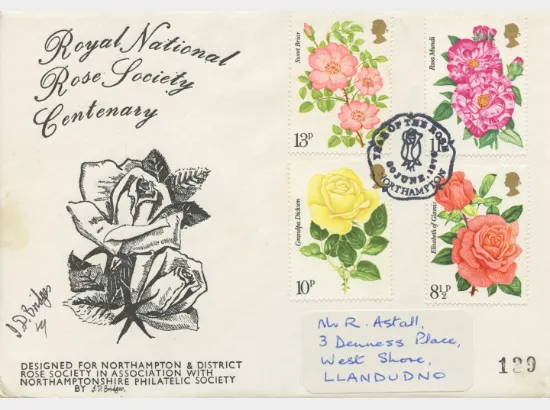 Royal National
Rose Society
Centenary
Sweet Briar
13P
Rosa Mundi
YEAR OF THE ROSE
30 JUNE 1976
NORTHAMPTON
Grandpa Dickson
10P
Elizabeth of Glamis
8½P
J.D. Bridges
DESIGNED FOR NORTHAMPTON & DISTRICT
ROSE SOCIETY IN ASSOCIATION WITH
NORTHAMPTONSHIRE PHILATELIC SOCIETY
BY J.D. Bridges.
Mr R. Astall,
3 Denness Place,
West Shore,
LLANDUDNO
129